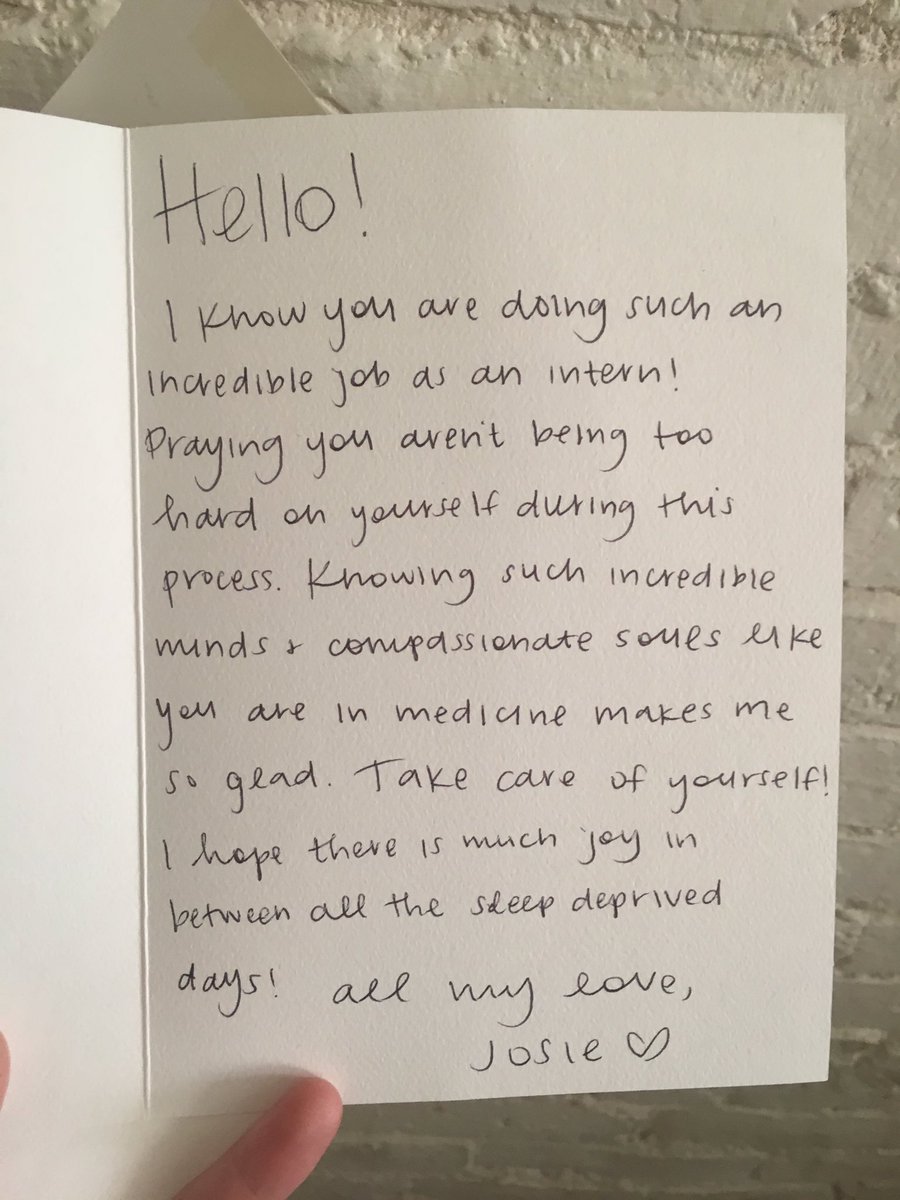 Hello!
I know you are doing such an
incredible job as an intern!
Praying you aren't being too
hard on yourself during this
process. Knowing such incredible
minds & compassionate souls like
you are in medicine makes me
so glad. Take care of yourself!
I hope there is much joy in
between all the sleep deprived
days! all my love,
Josie ♡